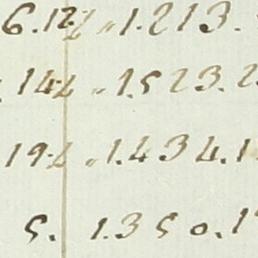 6.12 1.213.
14 1.523.2
19 1.434.1
5. 1.350.1